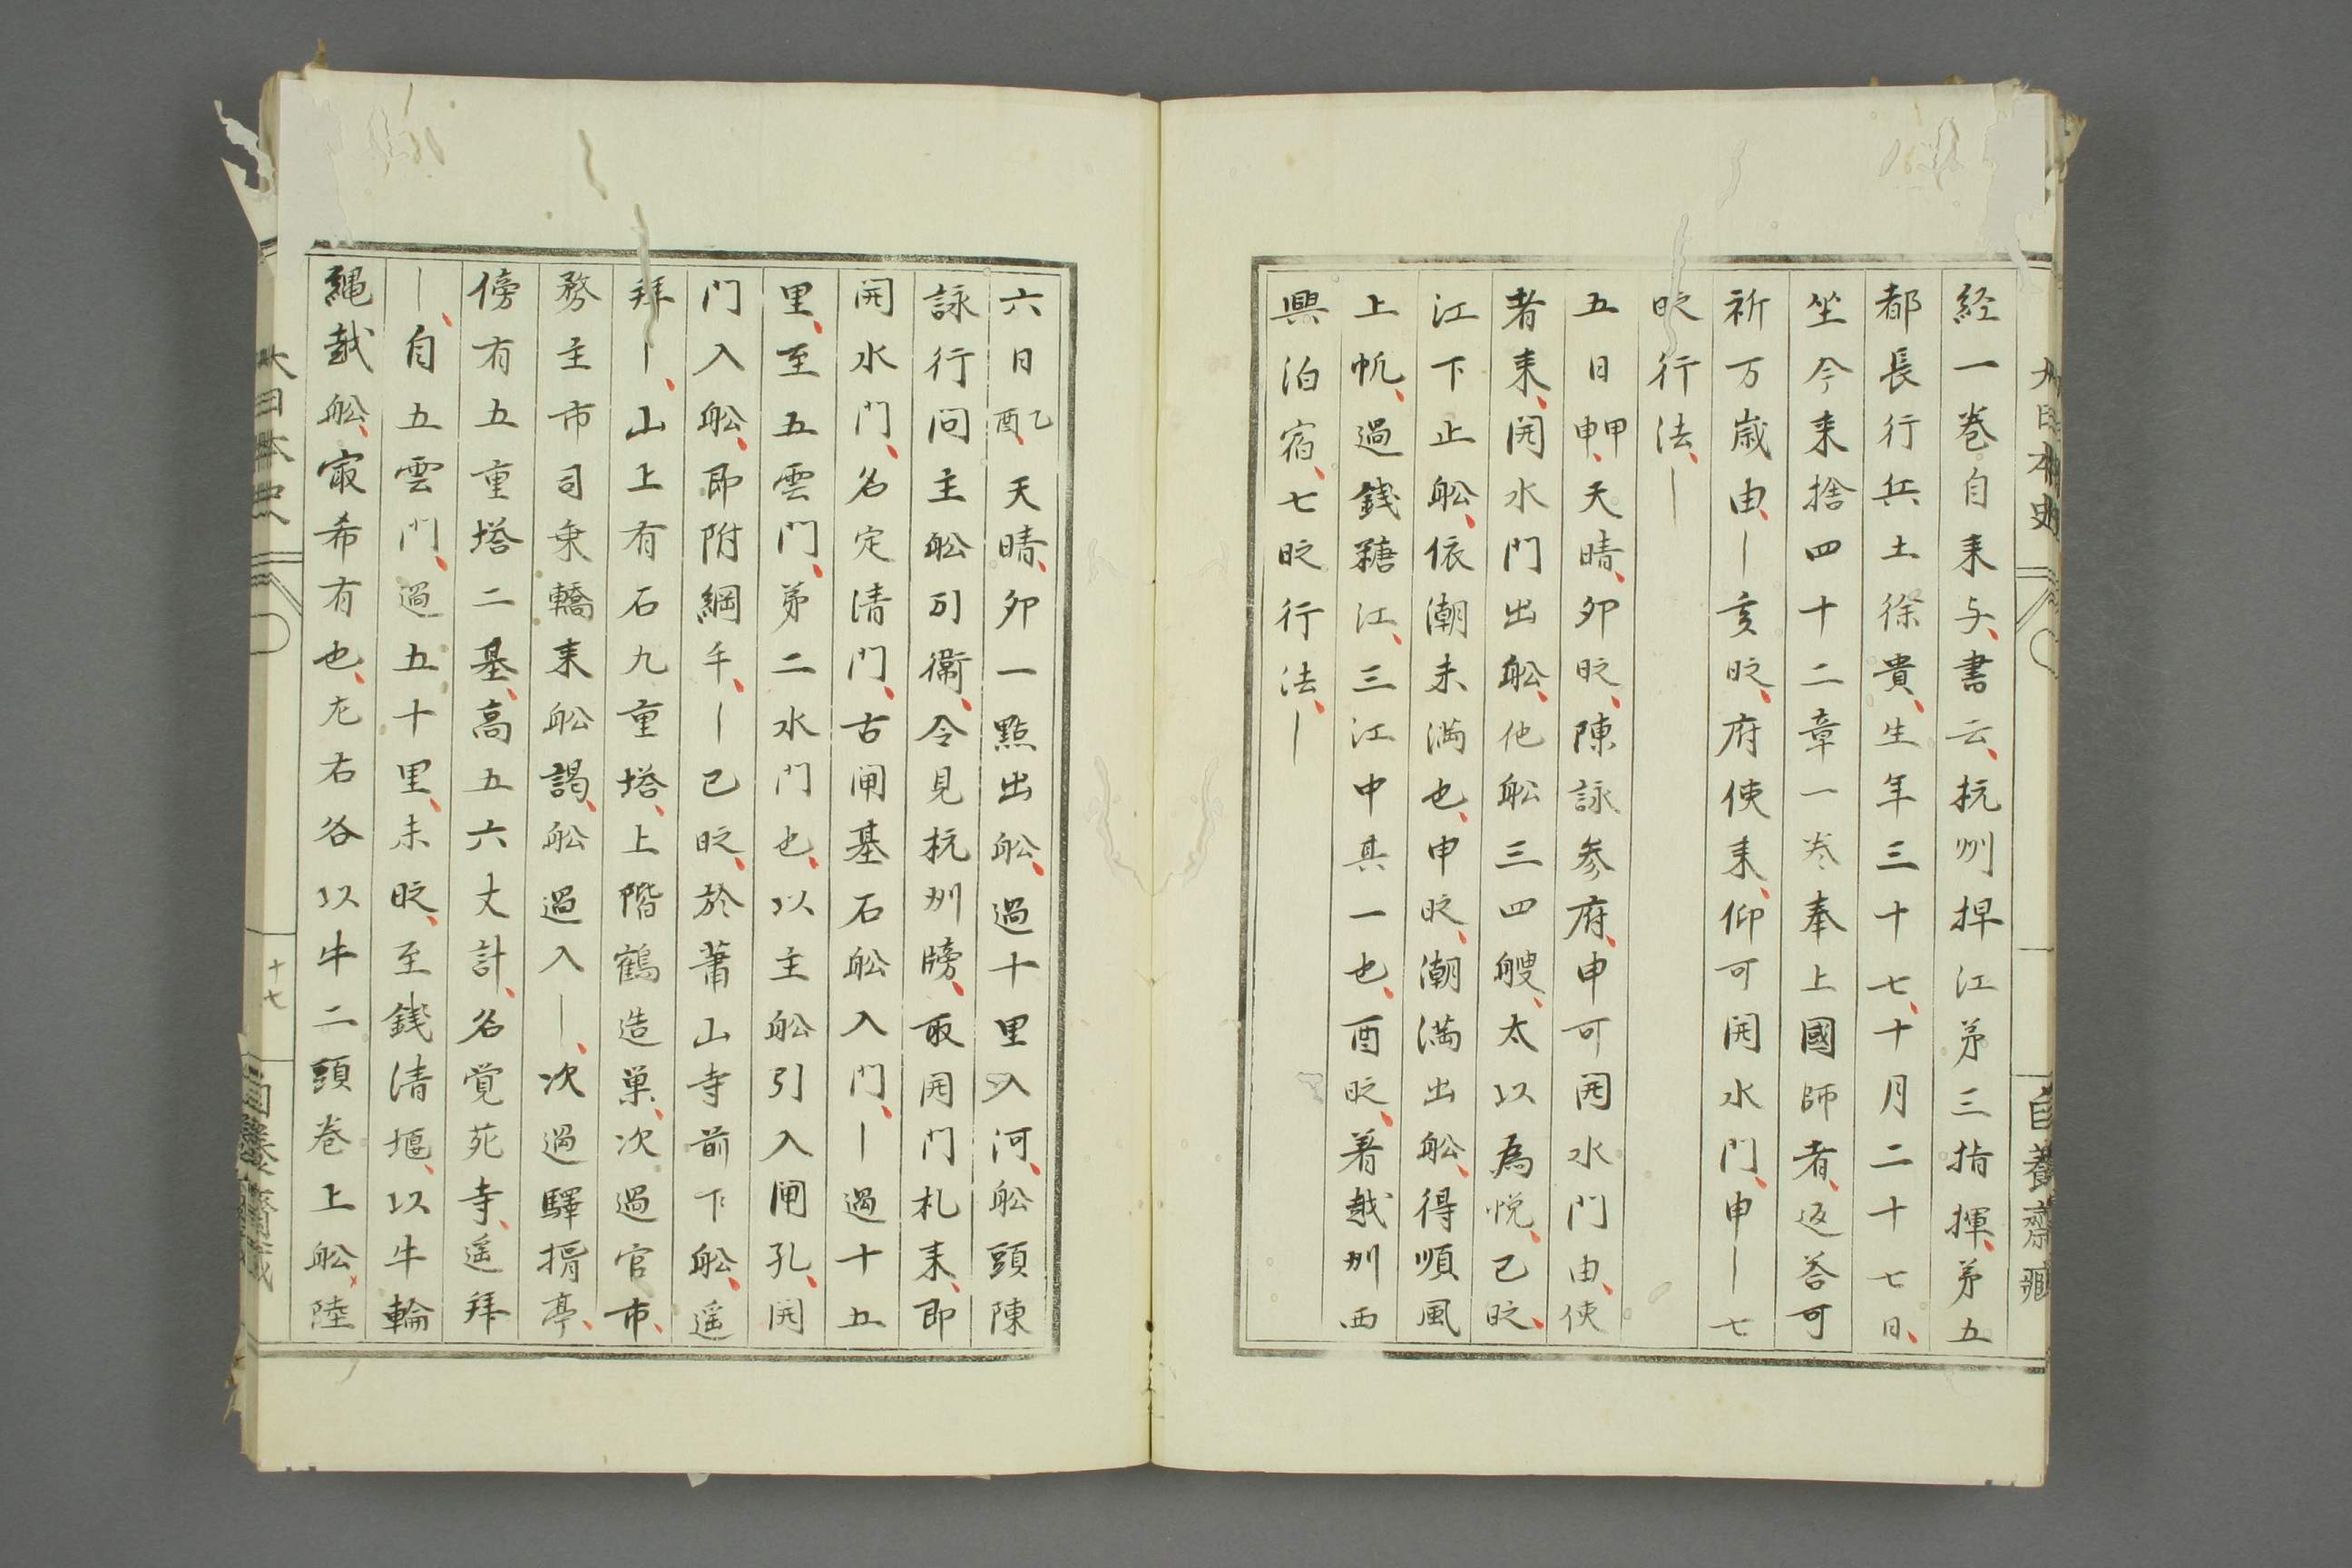 経一巻自来与書云杭州捍江苐三指揮苐五
都長行兵士徐貴生年三十七十月二十七日
坐今来捨四十二章一巻奉上國師者返荅可
祈万歳由〡亥時府使来仰可開水門申〡七
時行法〡
五日甲申天晴卯時陳詠参府申可開水門由使
者来開水門出舩他舩三四艘太以為悦已時
江下止舩依潮未満也申時潮満出舩得順風
上帆過錢糖江三江中其一也酉時着越州西
興泊宿七時行法〡
六日乙酉天晴卯一點出舩過十里入河舩頭陳
詠行問主舩司衙令見杭州牓取開門札来即
開水門名定清門古閘基石舩入門〡過十五
里至五雲門苐二水門也以主舩引入閘孔開
門入舩即附綱手〡已時於蕭山寺前下舩遥
拜〡山上有石九重塔上階鶴造巣次過官市
務主市司乗轎来舩謁舩過入〡次過驛捐亭
傍有五重塔二基高五六丈計名覚苑寺遥拜
〡自五雲門過五十里未時至錢清堰以牛輪
縄越舩寂希有也左右各以牛二頭巻上舩陸
大日本史
十七
自養齋蔵